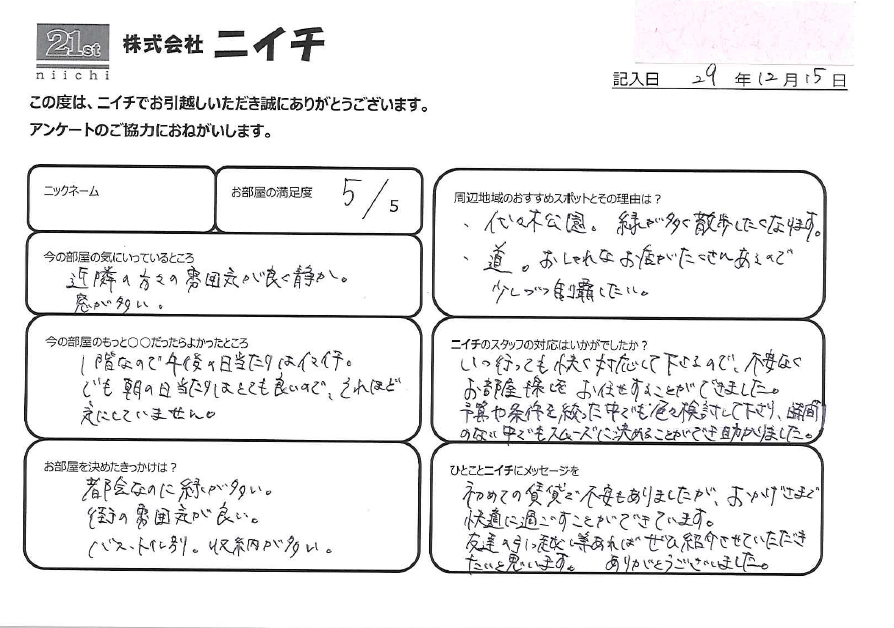 21st
niichi
株式会社 ニイチ
記入日 29 年 12 月 15 日
この度は、ニイチでお引越しいただき誠にありがとうございます。
アンケートのご協力におねがいします。
ニックネーム
お部屋の満足度 5/5
今の部屋の気にいっているところ
近隣の方々の雰囲気が良く静か。
窓が多い。
今の部屋のもっと〇〇だったらよかったところ
1階なので午後の日当たりはイマイチ。
でも朝の日当たりはとても良いので、それほど
気にしていません。
お部屋を決めたきっかけは？
都会なのに緑が多い。
街の雰囲気が良い。
バス、トイレ別。収納が多い。
周辺地域のおすすめスポットとその理由は？
、代々木公園。緑が多く散歩したくなります。
、道。おしゃれなお店がたくさんあるので
少しづつ制覇したい。
ニイチのスタッフの対応はいかがでしたか？
いつ行っても快く対応して下さるので、不安なく
お部屋探しをお任せすることができました。
予算や条件を絞った中でも色々検討して下さり、時間
のない中でもスムーズに決めることができ助かりました。
ひとことニイチにメッセージを
初めての賃貸で不安もありましたが、おかげさまで
快適に過ごすことができています。
友達の引っ越し等あればぜひ紹介させていただき
たいと思います。 ありがとうございました。